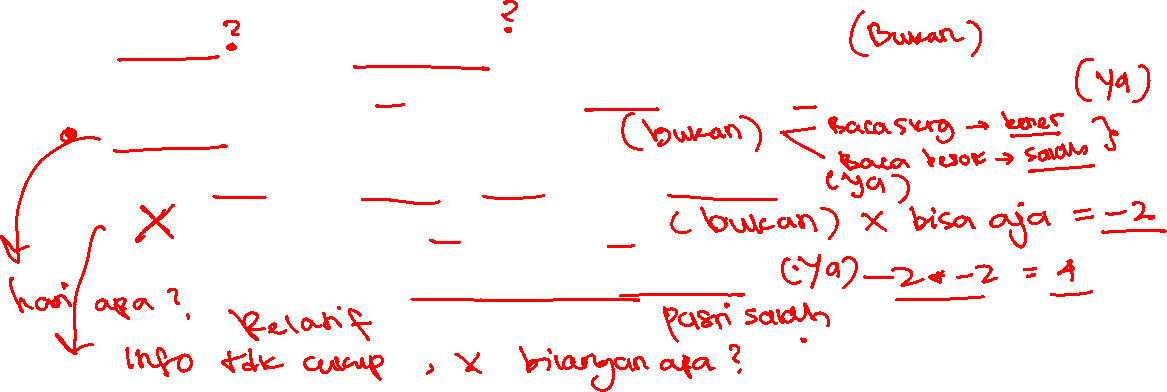 ? ?
(Bukan)
(Ya)
(bukan) < Baca skrg → bener }
Baca besok → salah
(Ya)
X (bukan) x bisa aja = -2
(Ya) -2 * -2 = 4
hari apa?
Relatif pasti salah.
info tdk cukup, x bilangan apa?